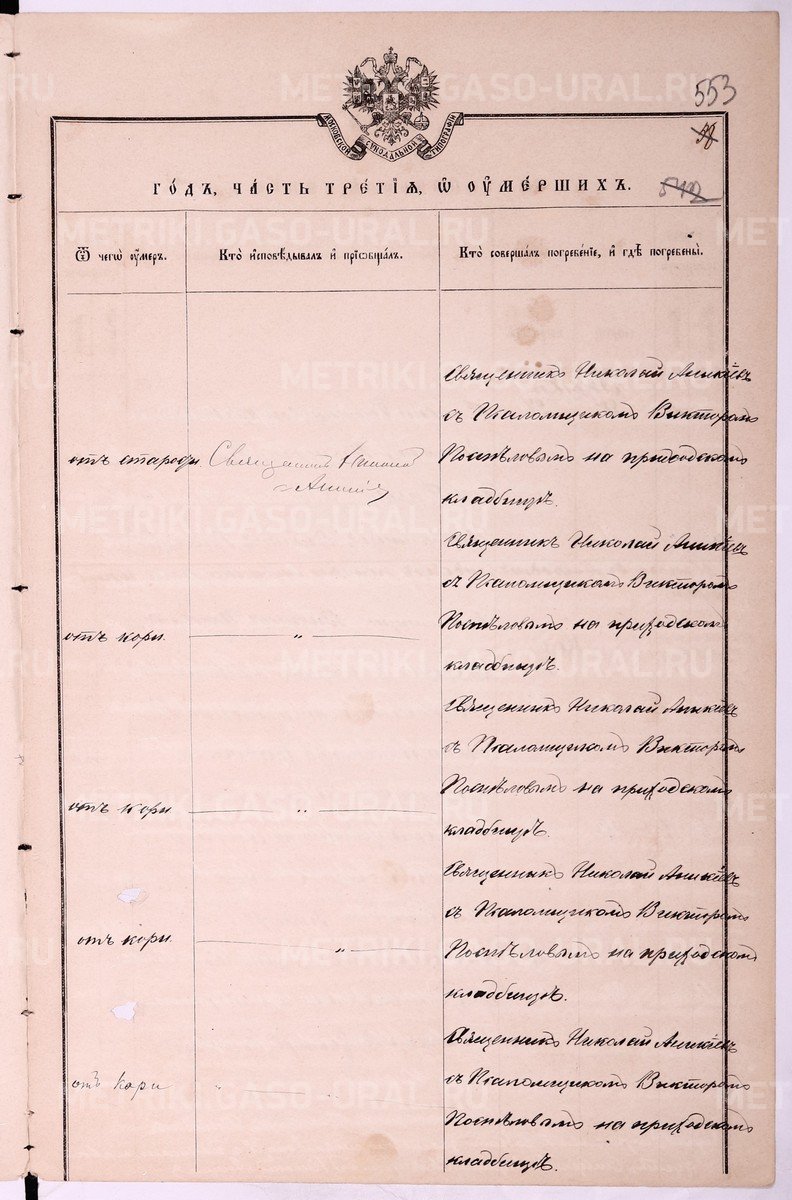 553
38
542
МОСКОВСКОЙ СУНОДАЛЬНОЙ ТИПОГРАФІИ
ГО́ДЪ, ЧА́СТЬ ТРЕ́ТІѦ, Ѿ ОУ҆МЕ́РШИХЪ.
Ѿ чегѡ̀ оу҆́меръ.
Кто̀ и҆сповѣ́дывалъ и҆ прїѡбща́лъ.
Кто̀ соверша́лъ погребе́нїе, и҆ гдѣ̀ погребены̀.
отъ старости
Священникъ Николай
Аникіевъ
Священникъ Николай Аникіевъ
съ Псаломщикомъ Викторомъ
Поспѣловымъ на приходскомъ
кладбищѣ.
отъ кори.
„
Священникъ Николай Аникіевъ
съ Псаломщикомъ Викторомъ
Поспѣловымъ на приходскомъ
кладбищѣ.
отъ кори.
„
Священникъ Николай Аникіевъ
съ Псаломщикомъ Викторомъ
Поспѣловымъ на приходскомъ
кладбищѣ.
отъ кори.
„
Священникъ Николай Аникіевъ
съ Псаломщикомъ Викторомъ
Поспѣловымъ на приходскомъ
кладбищѣ.
отъ кори
„
Священникъ Николай Аникіевъ
съ Псаломщикомъ Викторомъ
Поспѣловымъ на приходскомъ
кладбищѣ.
METRIKI.GASO-URAL.RU